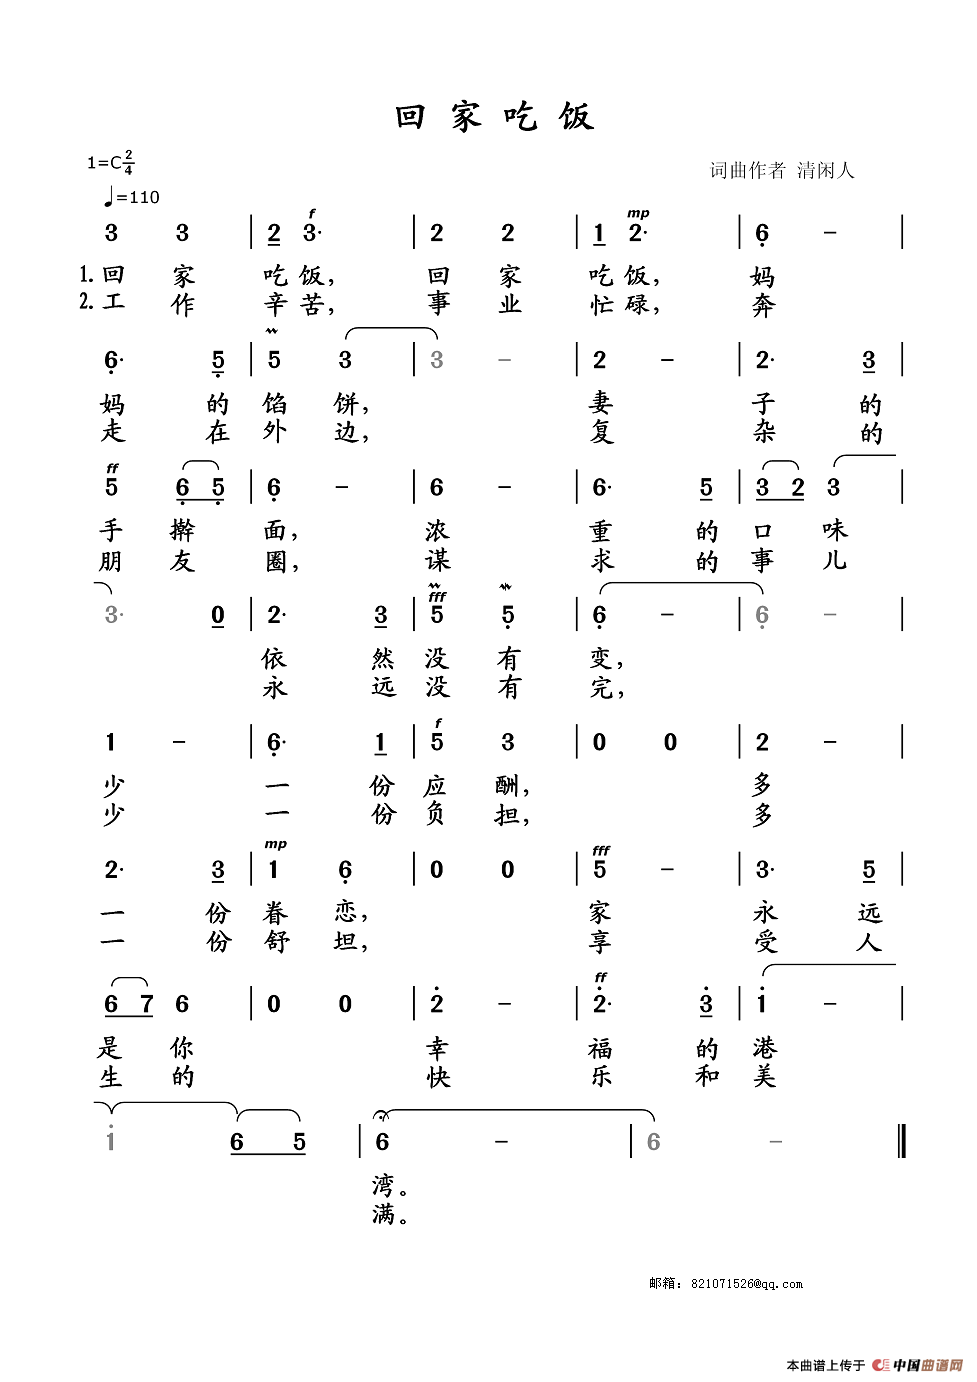 回家吃饭
1=C 2/4
词曲作者 清闲人
♩=110
f mp
3 3 | 2 3· | 2 2 | 1 2· | 6 - |
1.回 家 吃 饭, 回 家 吃 饭, 妈
2.工 作 辛 苦, 事 业 忙 碌, 奔
6· 5 | 5 3 | 3 - | 2 - | 2· 3 |
妈 的 馅 饼, 妻 子 的
走 在 外 边, 复 杂 的
ff
5 6 5 | 6 - | 6 - | 6· 5 | 3 2 3 |
手 擀 面, 浓 重 的 口 味
朋 友 圈, 谋 求 的 事 儿
fff
3· 0 | 2· 3 | 5 5 | 6 - | 6 - |
依 然 没 有 变,
永 远 没 有 完,
f
1 - | 6· 1 | 5 3 | 0 0 | 2 - |
少 一 份 应 酬, 多
少 一 份 负 担, 多
mp fff
2· 3 | 1 6 | 0 0 | 5 - | 3· 5 |
一 份 眷 恋, 家 永 远
一 份 舒 坦, 享 受 人
ff
6 7 6 | 0 0 | 2 - | 2· 3 | 1 - |
是 你 幸 福 的 港
生 的 快 乐 和 美
1 6 5 | 6 - | 6 - ‖
湾。
满。
邮箱: 821071526@qq.com
本曲谱上传于 中国曲谱网